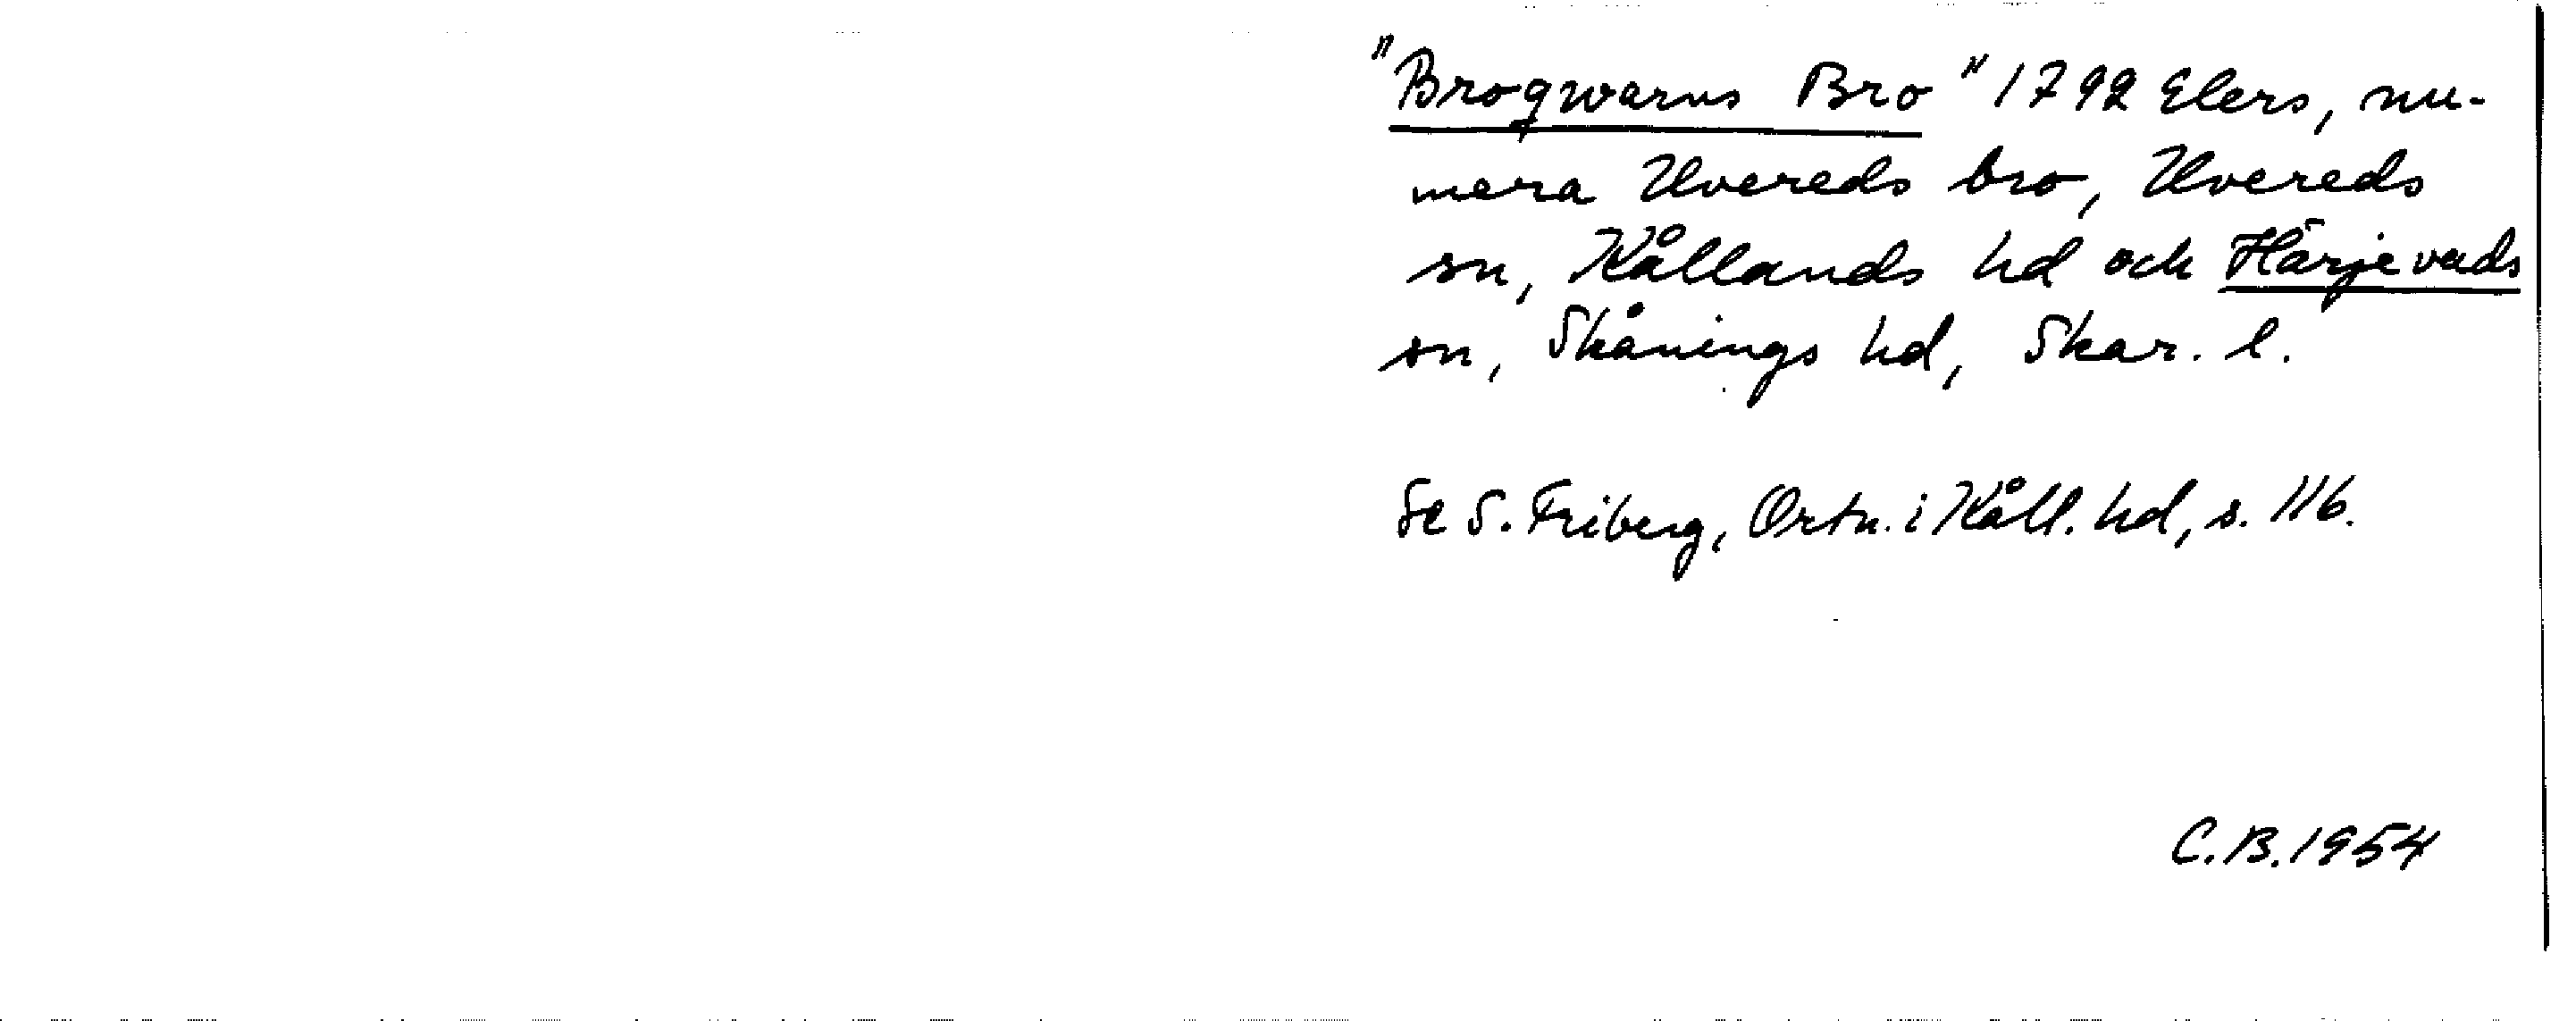 "Broqwarns Bro" 1792 Elers, nu-
mera Uvereds bro, Uvereds
sn, Kållands hd och Härjevads
sn, Skånings hd, Skar. l.
Se S. Friberg, Ortn. i Kåll. hd, s. 116.
C.B. 1954